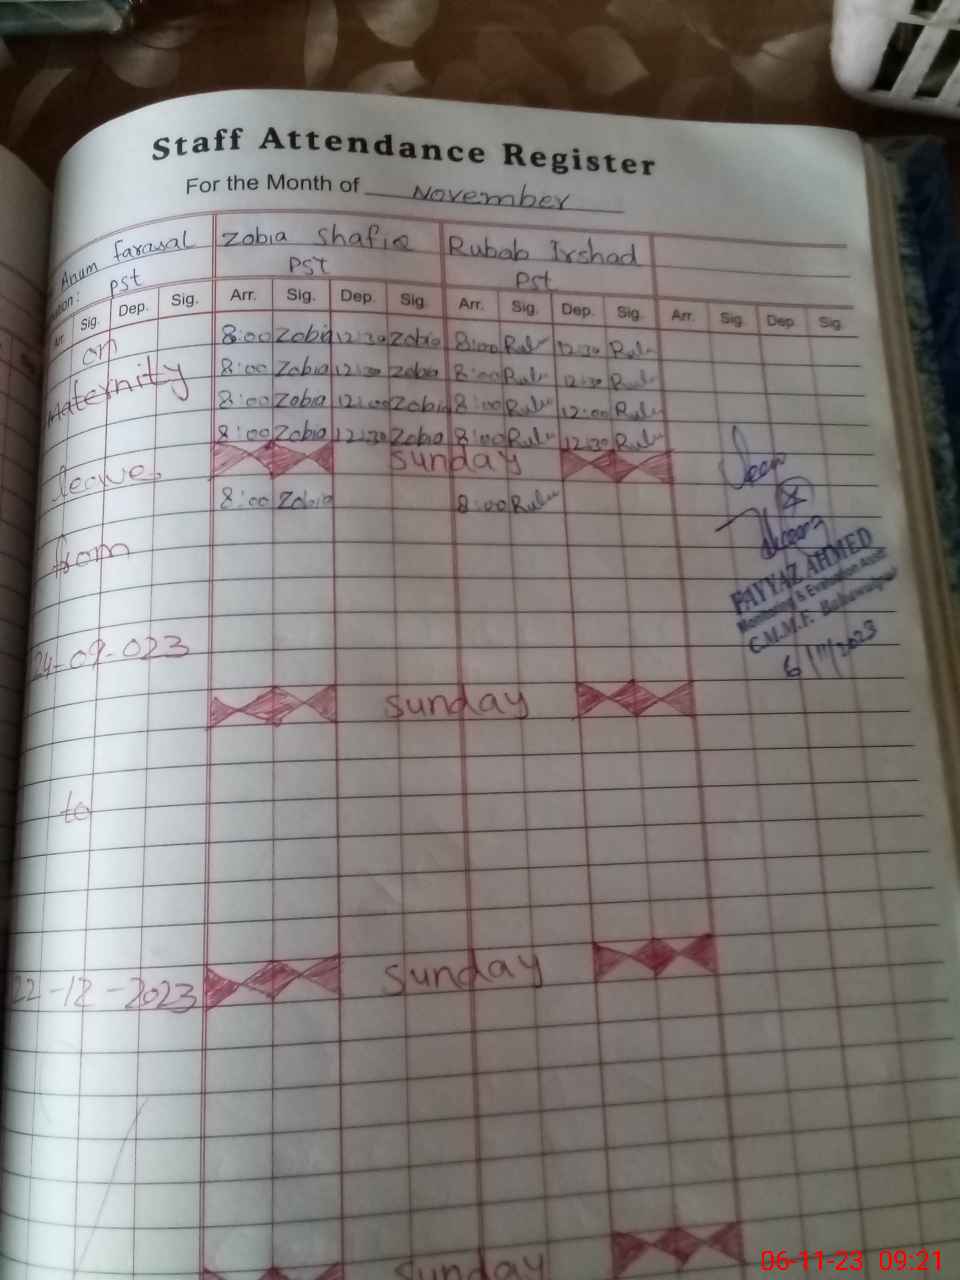 Staff Attendance Register
For the Month of November
Anum farasal Zobia Shafiq Rubab Irshad
PST PST Pst
Sig. Dep. Sig. Arr. Sig. Dep. Sig. Arr. Sig. Dep. Sig. Arr. Sig. Dep. Sig.
on 8:00 Zobia 12:30 Zobia 8:00 12:30
maternity 8:00 Zobia 12:30 Zobia 8:00 12:30
8:00 Zobia 12:00 Zobia 8:00 12:00
8:00 Zobia 12:30 Zobia 8:00 12:30
leave Sunday
8:00 Zobia 8:00
from
FAYYAZ AHMED
Monitoring & Evaluation Assit
C.M.M.F. Bahawalpur
6/11/2023
24-09-023
Sunday
to
Sunday
22-12-2023
Sunday
06-11-23 09:21